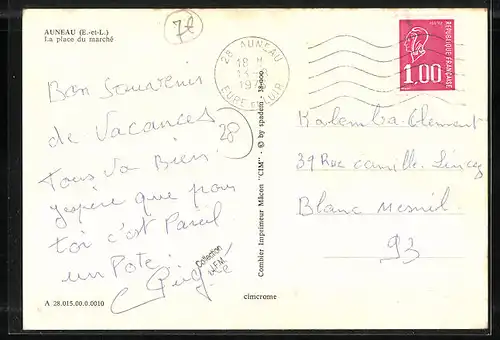 AUNEAU (E.-et-L.)
La place du marché
7€
28 AUNEAU
18 H
13-8
EURE-ET-LOIR
REPUBLIQUE FRANÇAISE
1,00
Bon Souvenir
de Vacances
Tous va Bien.
j'espère que pour
toi c'est Pareil
un Pote.
28
Kalemba Clement
39 Rue Camille
Blanc Mesnil
93
Collection
Combier Imprimeur Mâcon "CIM" - © by spadem - 38000
A 28.015.00.0.0010
cimcrome